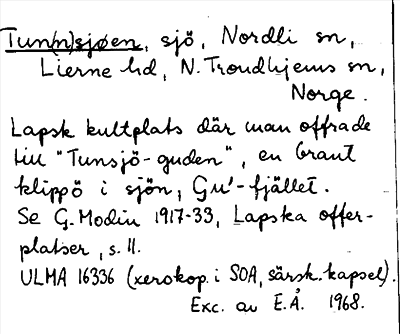 Tun(n)sjøen, sjö, Nordli sn,
Lierne hd, N. Trondhjems sn,
Norge.
Lapsk kultplats där man offrade
till "Tunsjö-guden", en brant
klippö i sjön, Gu'-fjället.
Se G. Modin 1917-33, Lapska offer-
platser, s. 11.
ULMA 16336 (xerokop. i SOA, särsk. kapsel).
Exc. av E.Å. 1968.